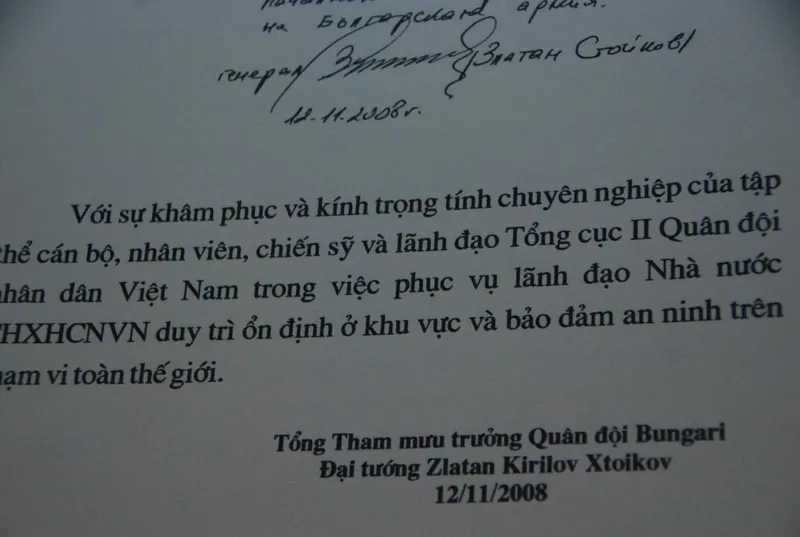 на Болгарската армия.
генерал Златан Стойков
12.11.2008г.
Với sự khâm phục và kính trọng tính chuyên nghiệp của tập
thể cán bộ, nhân viên, chiến sỹ và lãnh đạo Tổng cục II Quân đội
nhân dân Việt Nam trong việc phục vụ lãnh đạo Nhà nước
CHXHCNVN duy trì ổn định ở khu vực và bảo đảm an ninh trên
phạm vi toàn thế giới.
Tổng Tham mưu trưởng Quân đội Bungari
Đại tướng Zlatan Kirilov Xtoikov
12/11/2008